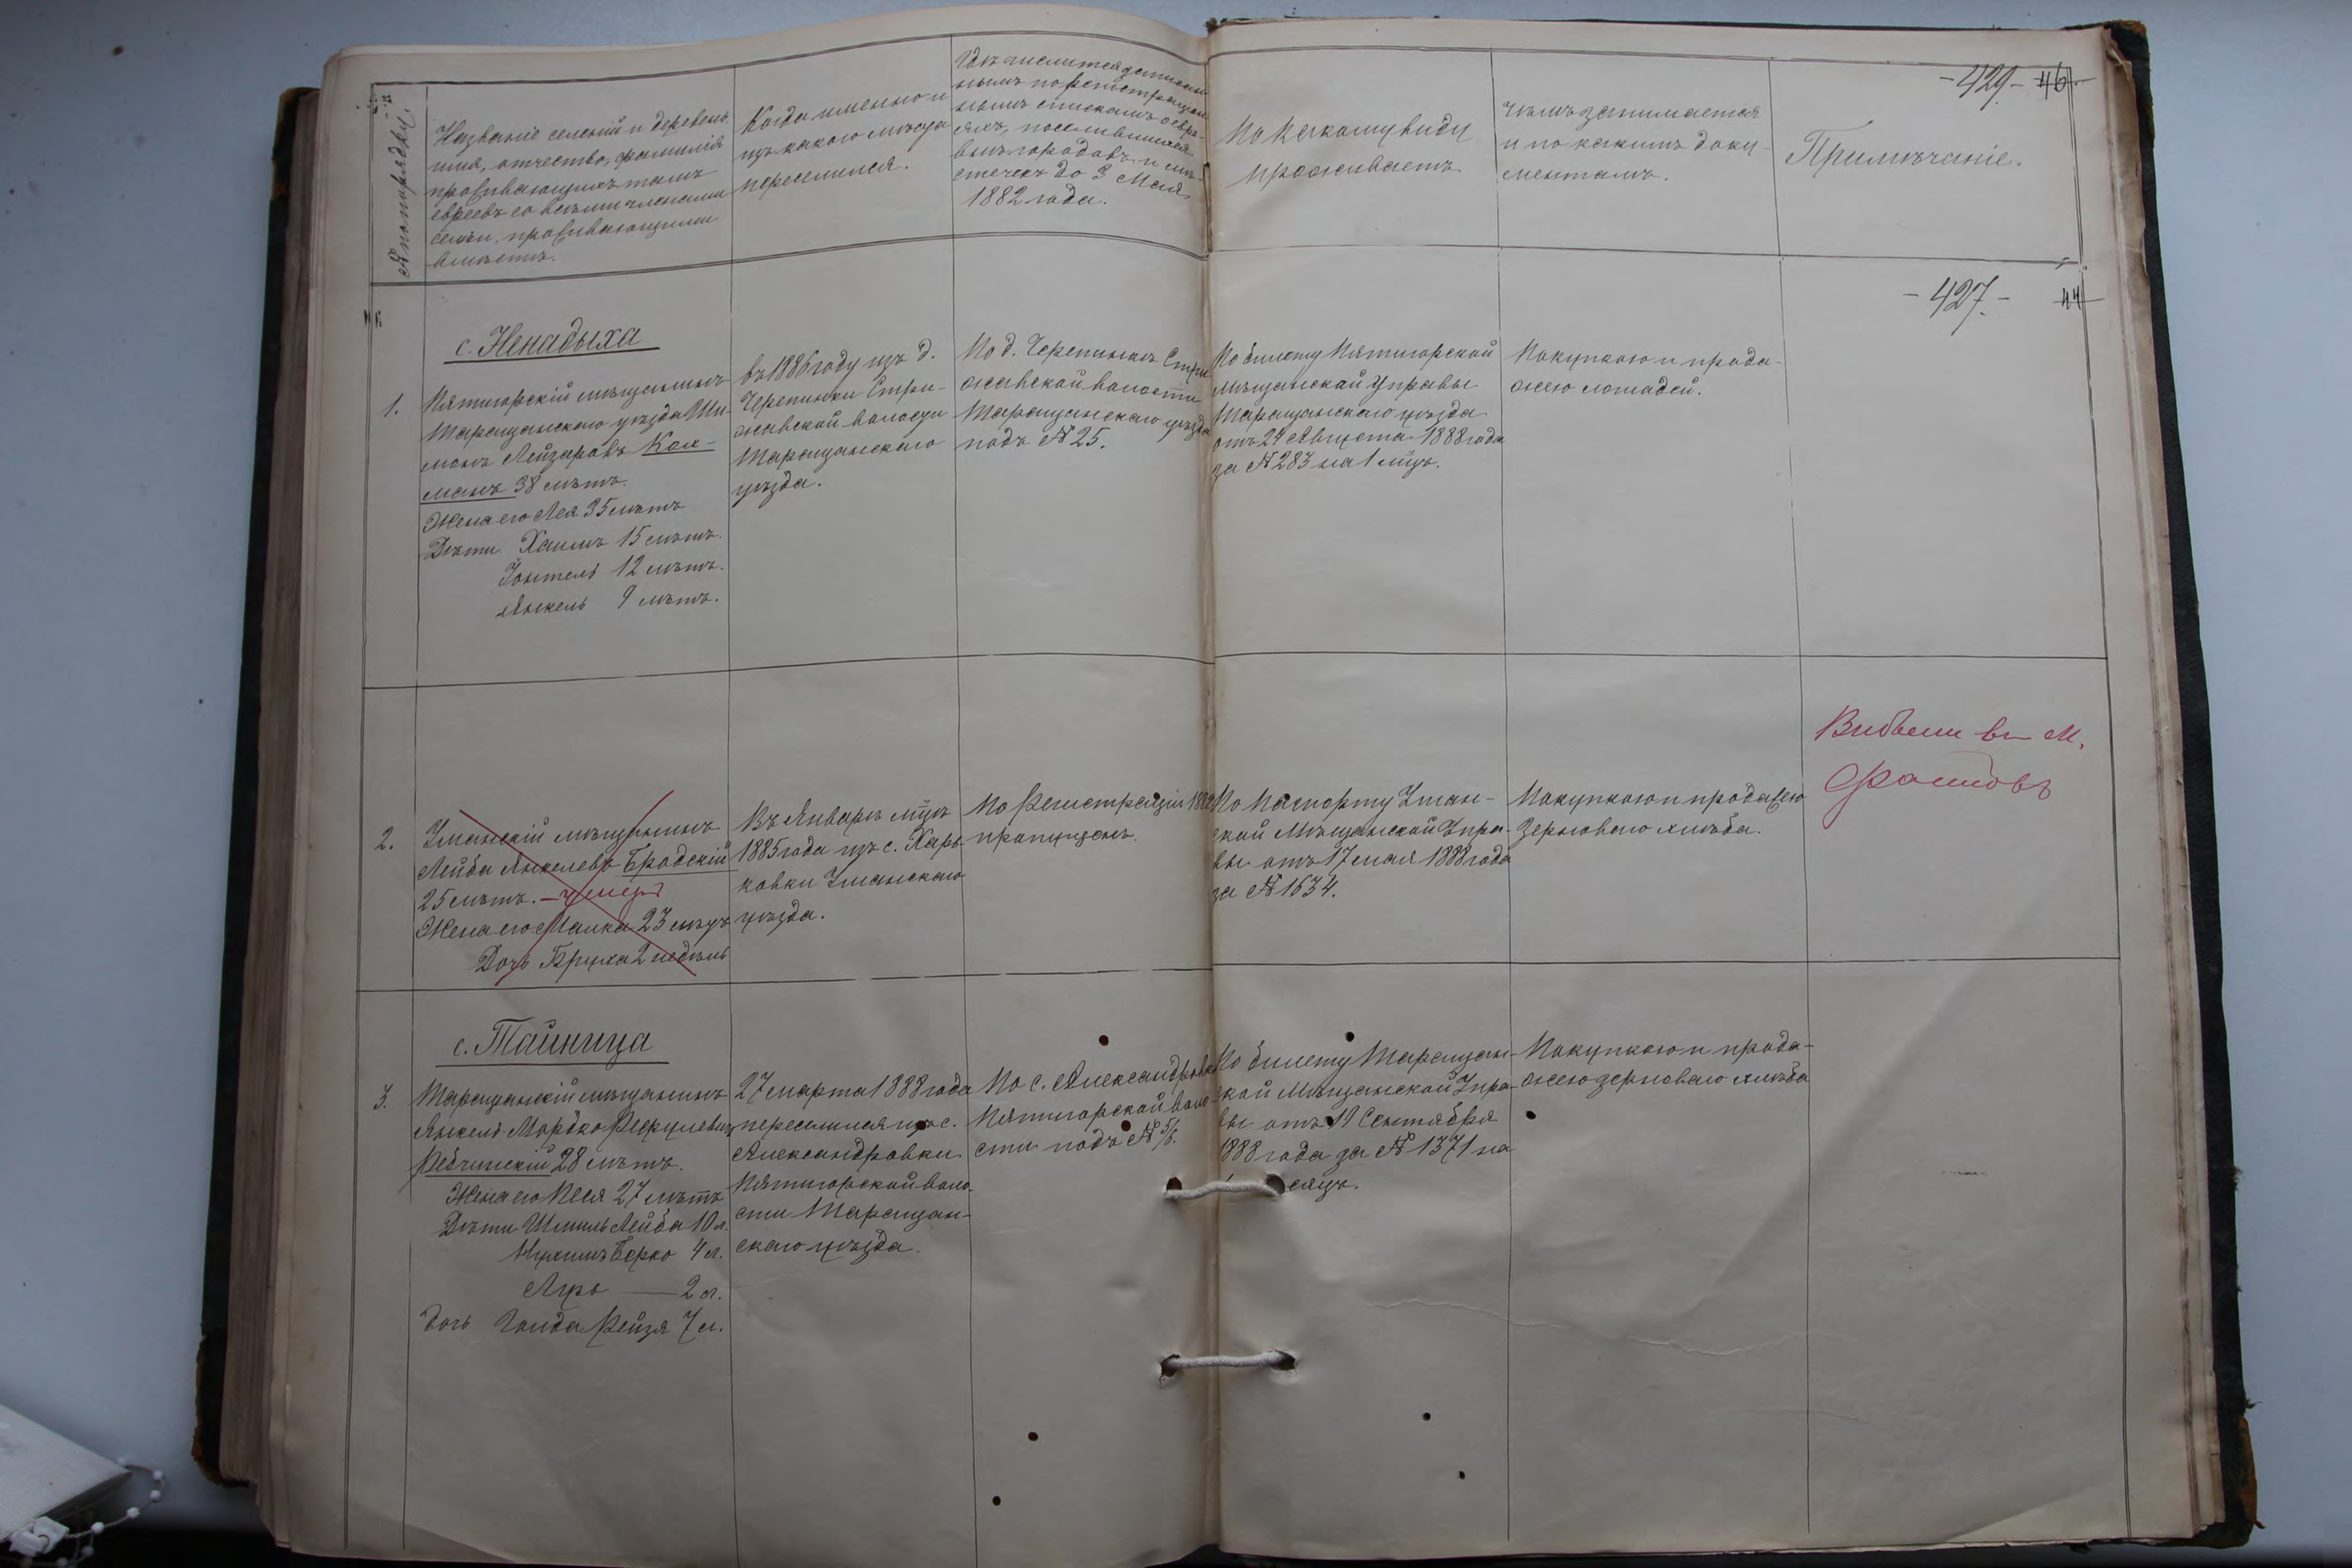 № по порядку
Названіе селеній и деревень,
имя, отчество, фамилія
проживающихъ тамъ
евреевъ со всѣми членами
семьи, проживающими
вмѣстѣ.
Когда именно и
изъ какого мѣста
переселился.
Гдѣ числится записан-
нымъ по регистрацион-
нымъ спискамъ о евре-
яхъ, поселившихся
внѣ городовъ и мѣ-
стечекъ до 3 Мая
1882 года.
По какому виду
проживаетъ.
Чѣмъ занимается
и по какимъ доку-
ментамъ.
Примѣчаніе.
-429.- 46
-427.- 44
с. Ненадыха
1.
Пятигорскій мѣщанинъ
Таращанскаго уѣзда Ши-
монъ Лейзеровъ Кол-
манъ 38 лѣтъ.
Жена его Лея 35 лѣтъ
Дѣти Хаимъ 15 лѣтъ.
Іонтель 12 лѣтъ.
Янкель 9 лѣтъ.
въ 1886 году изъ д.
Черепинки Стри-
жавской волости
Таращанскаго
уѣзда.
По д. Черепинкѣ Стри-
жавской волости
Таращанскаго уѣзда
подъ № 25.
По билету Пятигорской
мѣщанской управы
Таращанскаго уѣзда
отъ 24 Августа 1888 года
за № 283 на 1 мѣц.
Покупкою и прода-
жею лошадей.
2.
Уманскій мѣщанинъ
Лейба Янкелевъ Бродскій
25 лѣтъ. - умеръ
Жена его Малка 23 лѣтъ
Дочь Бруха 2 недѣль
Въ Январѣ мѣц
1885 года изъ с. Харь-
ковки Уманскаго
уѣзда.
По Регистраціи 1882
пропущенъ.
По паспорту Уман-
ской Мѣщанской Упра-
вы отъ 17 мая 1888 года
за № 1634.
Покупкою и продажею
зерноваго хлѣба.
Выбыли въ М.
3.
с. Тайница
Таращанскій мѣщанинъ
Янкель Мордко Рефулевичъ
Ребчинскій 28 лѣтъ.
Жена его Песя 27 лѣтъ
Дѣти Шмиль Лейба 10 л.
Нухимъ Берко 4 л.
2 л.
Дочь Голда Рейзя 7 л.
27 марта 1888 года
переселился изъ с.
Александровки
Пятигорской воло-
сти Таращан-
скаго уѣзда.
По с. Александровкѣ
Пятигорской воло-
сти подъ № 5/6.
По билету Таращан-
ской Мѣщанской Упра-
вы отъ 19 Сентября
1888 года за № 1371 на
Покупкою и прода-
жею зерноваго хлѣба